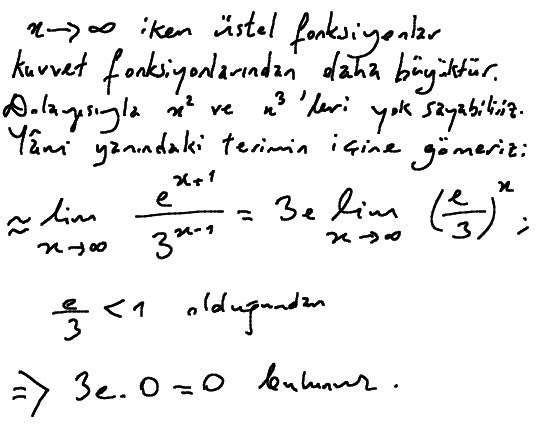 x→∞ iken üstel fonksiyonlar
kuvvet fonksiyonlarından daha büyüktür.
Dolayısıyla x² ve x³ 'leri yok sayabiliriz.
Yâni yanındaki terimin içine gömeriz:
≈ lim x→∞ e^(x+1) / 3^(x-1) = 3e lim x→∞ (e/3)^x ;
e/3 < 1 olduğundan
⇒ 3e.0 = 0 bulunur.